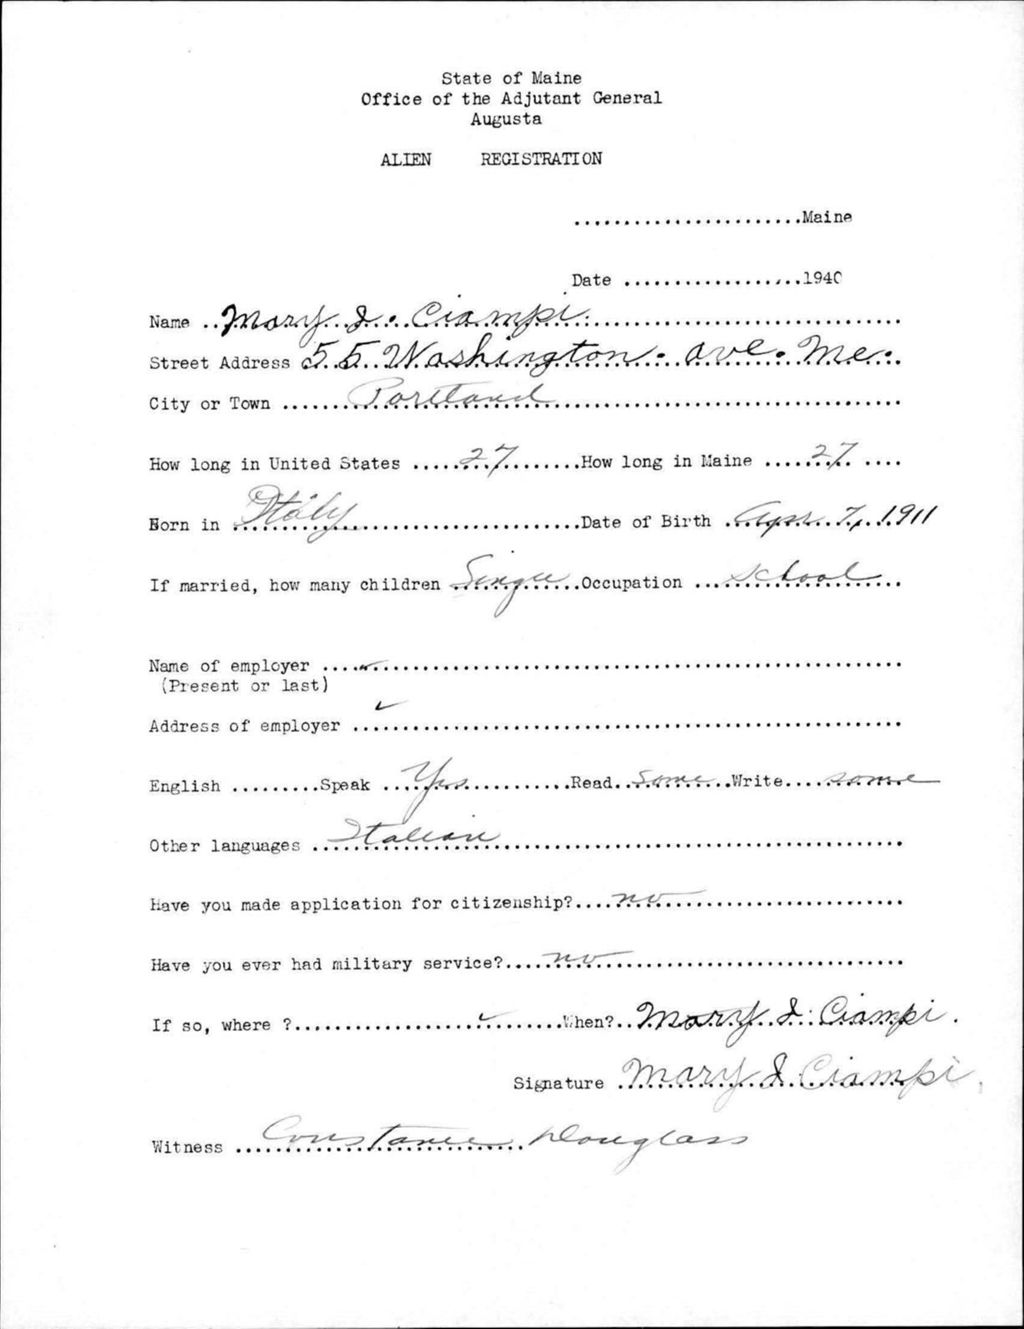 State of Maine
Office of the Adjutant General
Augusta
ALIEN REGISTRATION
.......................Maine
Date ..................1940
Name ..Mary J. Ciampi..............................
Street Address 55 Washington. ave. Me.
City or Town .......Portland...................................
How long in United States .....27........How long in Maine .....27......
Born in .Italy.........................Date of Birth .Apr. 7, 1911
If married, how many children .Single......Occupation ...school...
Name of employer ....✓..................................................
(Present or last)
Address of employer ..✓...................................................
English .........Speak ....Yes...........Read..Some...Write....some
Other languages ...Italian........................................
Have you made application for citizenship?....no.......................
Have you ever had military service?.....no..............................
If so, where ?...................✓........When?..Mary J. Ciampi.
Signature .Mary J. Ciampi.
Witness ..Constance Douglass